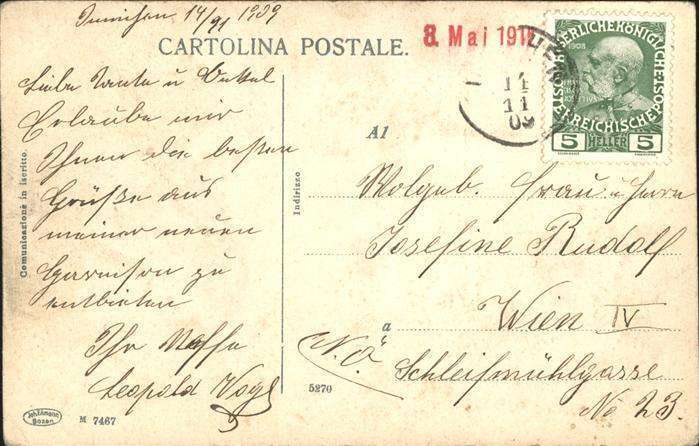 14/11 1909
CARTOLINA POSTALE.
8. Mai 191
14
11
09
1908
ÖSTERREICHISCHE
5 HELLER 5
Liebe Tante u Onkel
Erlaube mir
Ihnen die besten
Grüße aus
meiner neuen
Garnison zu
entbieten
Ihr Neffe
Leopold Vogl
Comunicazione in iscritto.
Indirizzo
Al
Wolgeb. Frau u Herrn
Josefine Rudolf
a
Wien IV
N.Ö.
Schleifmühlgasse
No 23.
5270
Joh. Amonn
Bozen
M 7467